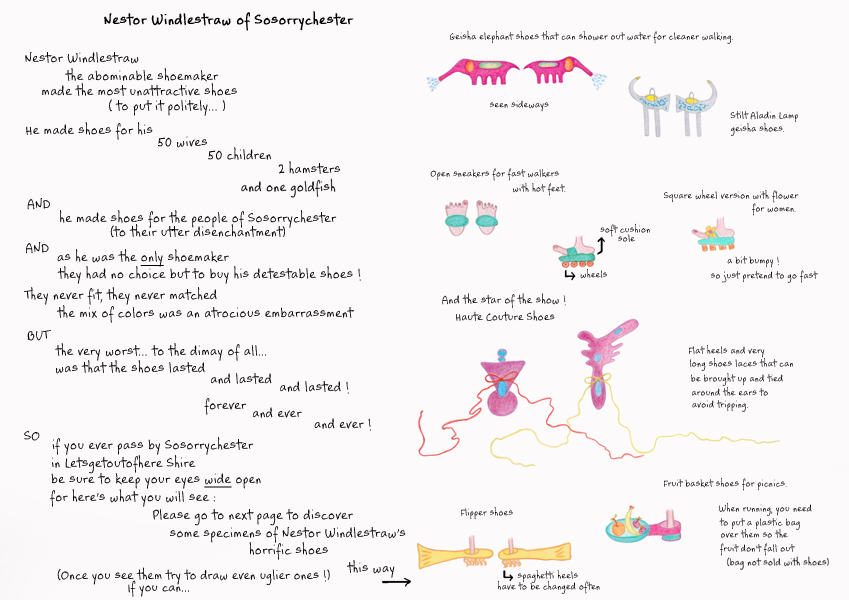 Nestor Windlestraw of Sosorrychester
Nestor Windlestraw
the abominable shoemaker
made the most unattractive shoes
( to put it politely... )
He made shoes for his
50 wives
50 children
2 hamsters
and one goldfish
AND
he made shoes for the people of Sosorrychester
(to their utter disenchantment)
AND
as he was the only shoemaker
they had no choice but to buy his detestable shoes !
They never fit, they never matched
the mix of colors was an atrocious embarrassment
BUT
the very worst... to the dimay of all...
was that the shoes lasted
and lasted
and lasted !
forever
and ever
and ever !
SO
if you ever pass by Sosorrychester
in Letsgetoutofhere Shire
be sure to keep your eyes wide open
for here's what you will see :
Please go to next page to discover
some specimens of Nestor Windlestraw's
horrific shoes
(Once you see them try to draw even uglier ones !)
If you can...
this way
Geisha elephant shoes that can shower out water for cleaner walking.
seen sideways
Stilt Aladin Lamp
geisha shoes.
Open sneakers for fast walkers
with hot feet.
soft cushion
sole
wheels
Square wheel version with flower
for women.
a bit bumpy !
so just pretend to go fast
And the star of the show !
Haute Couture Shoes
Flat heels and very
long shoes laces that can
be brought up and tied
around the ears to
avoid tripping.
Fruit basket shoes for picnics.
When running, you need
to put a plastic bag
over them so the
fruit don't fall out
(bag not sold with shoes)
Flipper shoes
spaghetti heels
have to be changed often